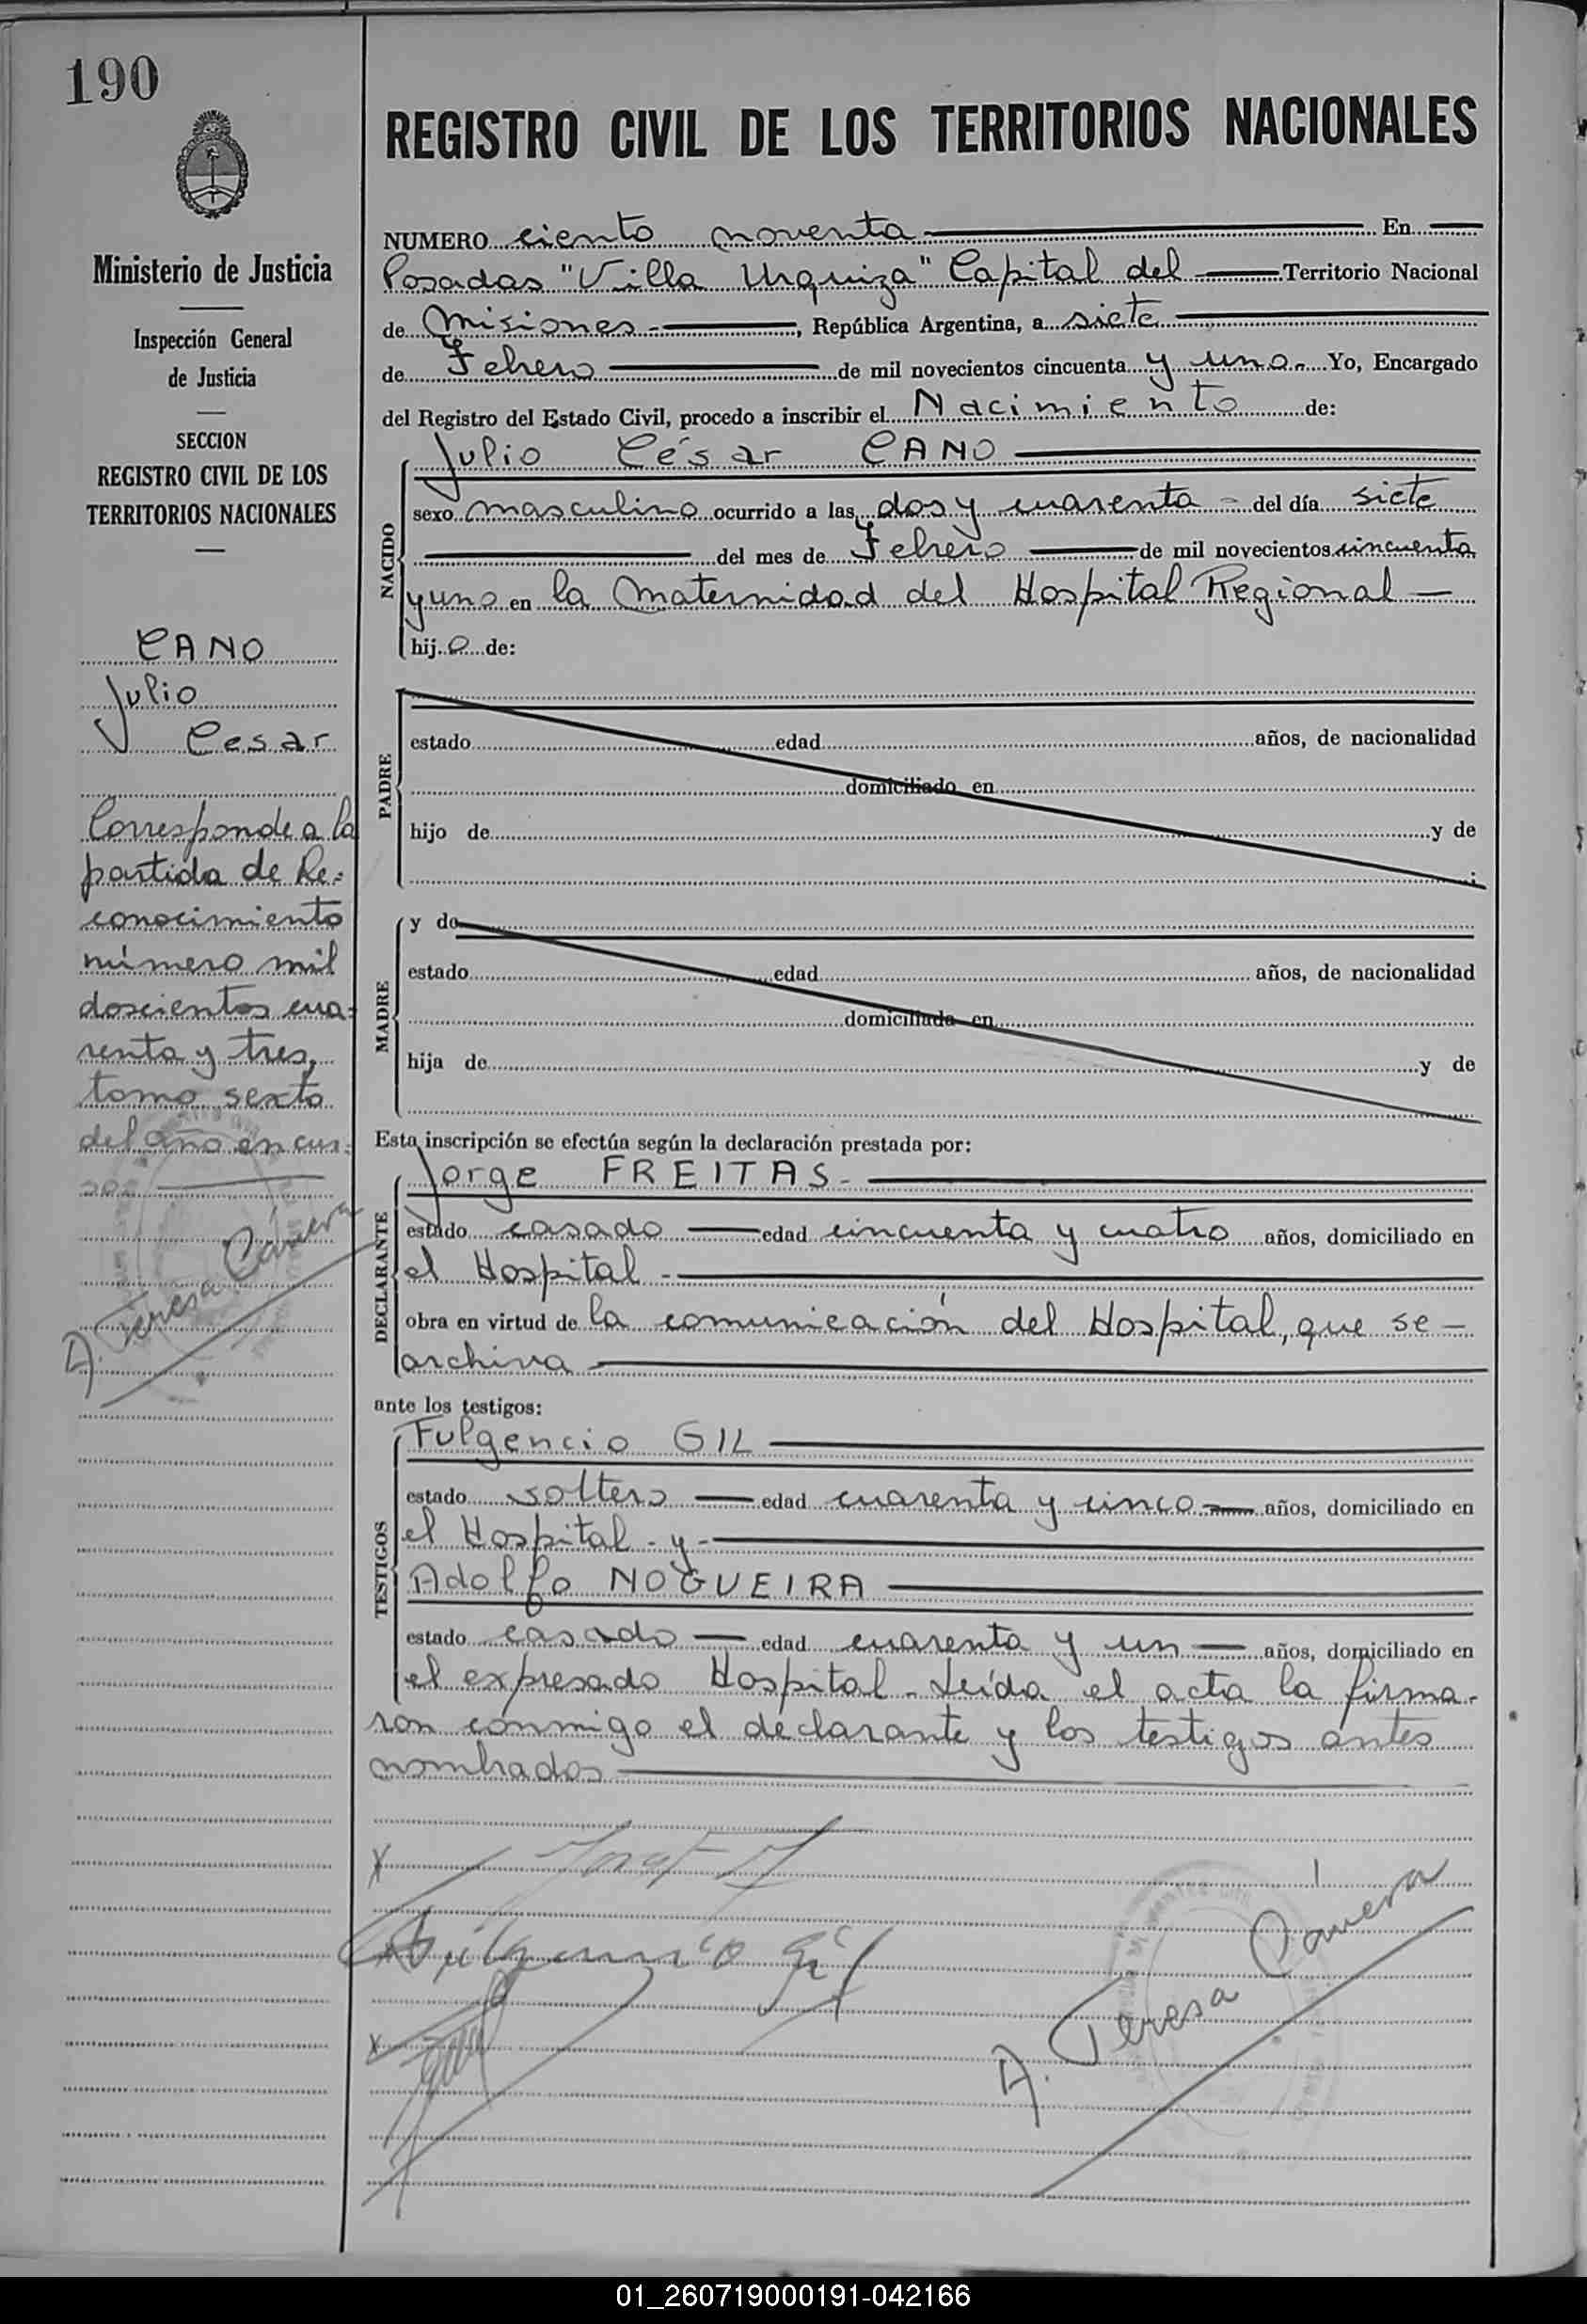 190
REGISTRO CIVIL DE LOS TERRITORIOS NACIONALES
Ministerio de Justicia
Inspección General
de Justicia
SECCION
REGISTRO CIVIL DE LOS
TERRITORIOS NACIONALES
CANO
Julio
Cesar
Corresponde a la
partida de Re=
conocimiento
número mil
doscientos cua=
renta y tres,
tomo sexto
del año en cur=
so
A. Teresa
NUMERO ciento noventa En
Posadas "Villa Urquiza" Capital del Territorio Nacional
de Misiones - , República Argentina, a siete
de Febrero de mil novecientos cincuenta y uno. Yo, Encargado
del Registro del Estado Civil, procedo a inscribir el Nacimiento de:
NACIDO
Julio César CANO
sexo masculino ocurrido a las dos y cuarenta - del día siete
del mes de Febrero de mil novecientos cincuenta
y uno en la Maternidad del Hospital Regional
hij o de:
PADRE
estado edad años, de nacionalidad
domiciliado en
hijo de y de
;
MADRE
y de
estado edad años, de nacionalidad
domiciliada en
hija de y de
Esta inscripción se efectúa según la declaración prestada por:
DECLARANTE
Jorge FREITAS -
estado casado edad cincuenta y cuatro años, domiciliado en
el Hospital -
obra en virtud de la comunicación del Hospital, que se
archiva
ante los testigos:
TESTIGOS
Fulgencio GIL
estado soltero edad cuarenta y cinco años, domiciliado en
el Hospital - y -
Adolfo NOGUEIRA
estado casado edad cuarenta y un años, domiciliado en
el expresado Hospital - Leída el acta la firma-
ron conmigo el declarante y los testigos antes
nombrados
Fulgencio Gil
A. Teresa
01_260719000191-042166